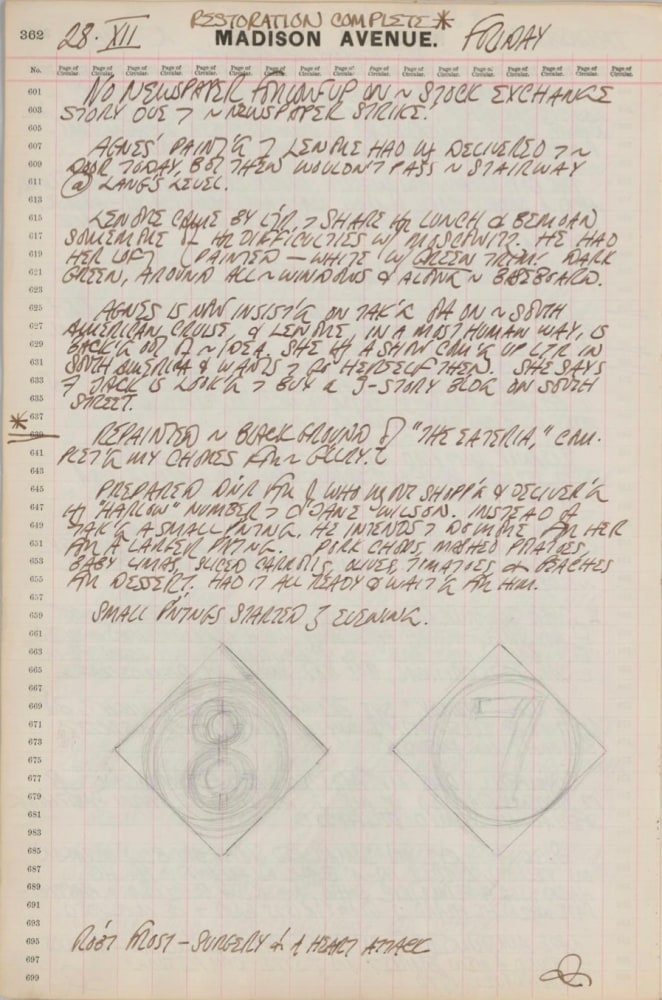 RESTORATION COMPLETE *
362 28 · XII MADISON AVENUE. FRIDAY
No. Page of Circular. Page of Circular. Page of Circular. Page of Circular. Page of Circular. Page of Circular. Page of Circular. Page of Circular. Page of Circular. Page of Circular. Page of Circular. Page of Circular. Page of Circular. Page of Circular. Page of Circular. Page of Circular. Page of Circular.
601 NO NEWSPAPER FOLLOW-UP ON ~ STOCK EXCHANGE
603 STORY DUE 7 ~ NEWSPAPER STRIKE.
605
607 AGNES' PAINT'G 7 LENORE HAD DELIVERED 7 ~
609 DOOR TODAY, BUT THEN WOULDN'T PASS ~ STAIRWAY
611 @ LANG'S LEVEL.
613
615 LENORE CAME BY LTR 7 SHARE LUNCH & BEMOAN
617 SOME MORE DIFFICULTIES W/ MOSCOWITZ. HE HAD
619 HER LOFT PAINTED — WHITE W/ GREEN TRIM: DARK
621 GREEN, AROUND ALL ~ WINDOWS & ALONG ~ BASEBOARD.
623
625 AGNES IS NOW INSIST'G ON TAK'G ON ~ SOUTH
627 AMERICAN CRUISE, & LENORE, IN A MOST HUMAN WAY, IS
629 BACK'G OUT ~ IDEA. SHE A SHOW COM'G UP LTR IN
631 SOUTH AMERICA & WANTS 7 GO HERSELF THEN. SHE SAYS
633 7 JACK IS LOOK'G 7 BUY A 3-STORY BLDG ON SOUTH
635 STREET.
* 637
639 REPAINTED ~ BLACK GROUND "THE EATERIA," COM-
641 PLET'G MY CHORES ~ GLLRY.
643
645 PREPARED DNR WHO WENT SHOPP'G & DELIVER'G
647 "HARLOW" NUMBER 7 JANE WILSON. INSTEAD
649 TAK'G A SMALL PNTNG, HE INTENDS 7 HER
651 A LARGER PNTNG. PORK CHOPS, MASHED POTATOES,
653 BABY LIMAS, SLICED CARROTS, OLIVES, TOMATOES & PEACHES
655 DESSERT. HAD IT ALL READY & WAIT'G HIM.
657
659 SMALL PNTNGS STARTED EVENING.
661
663
665
667
669
671 8 7
673
675
677
679
681
983
685
687
689
691
693
695 ROB'T FROST — SURGERY & A HEART ATTACK
697
699